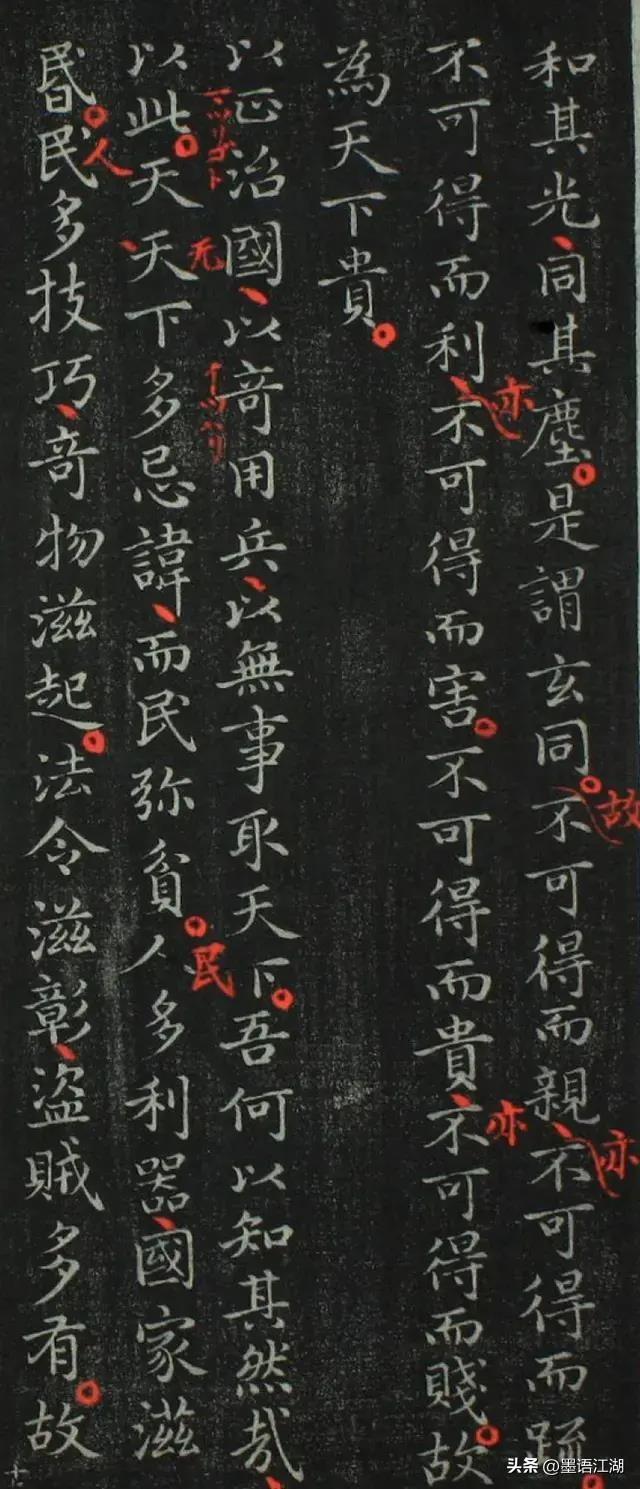 和其光同其塵是謂玄同不可得而親不可得而踈
不可得而利不可得而害不可得而貴不可得而賤故
為天下貴
以正治國以竒用兵以無事取天下吾何以知其然哉
以此天天下多忌諱而民弥貧人多利器國家滋
昬民多技巧竒物滋起法令滋彰盗賊多有故
故
亦
亦
亦
无
民
人
头条 @墨语江湖